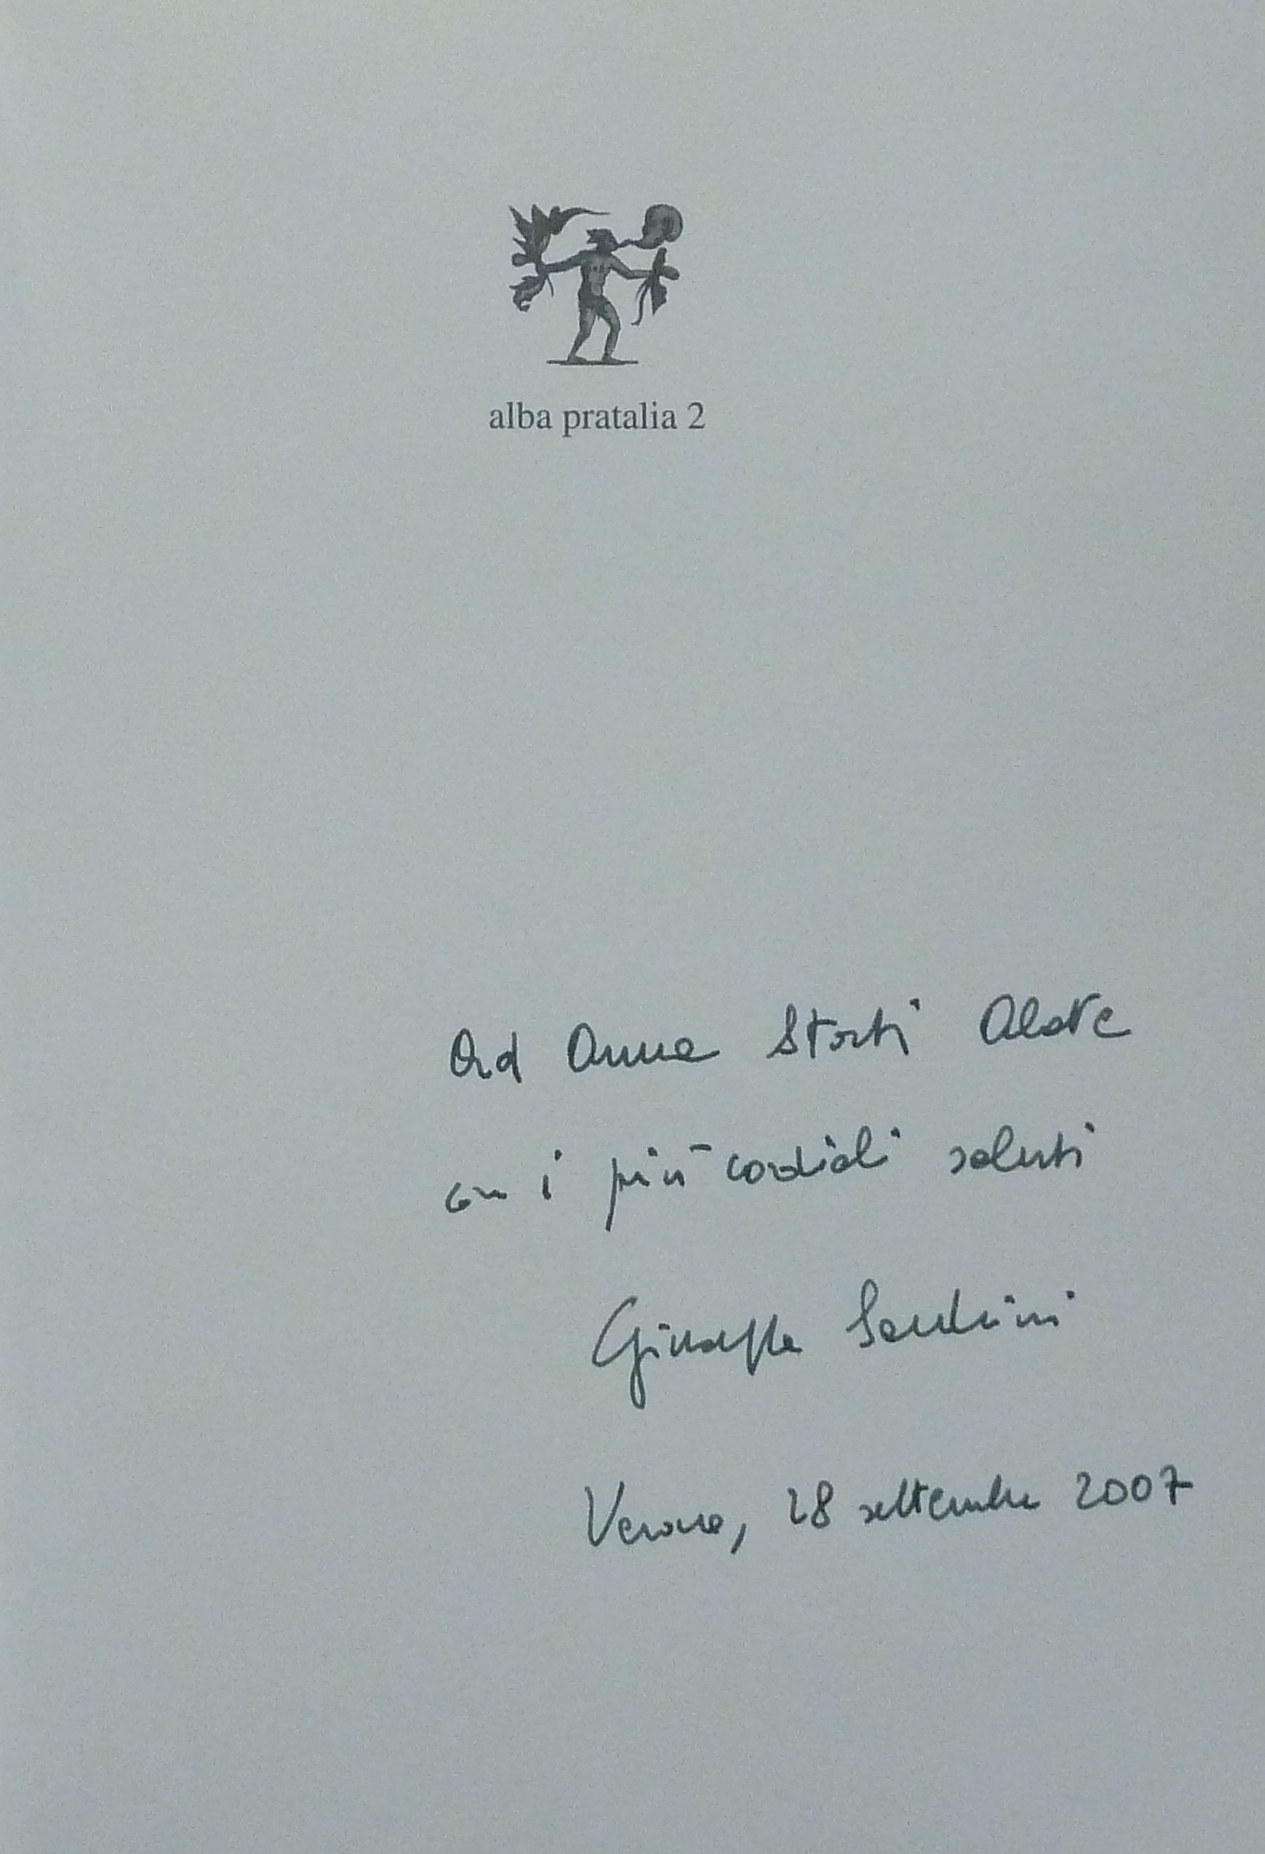 alba pratalia 2
Ad Anna Storti Abate
con i più cordiali saluti
Giuseppe Sandrini
Verona, 28 settembre 2007